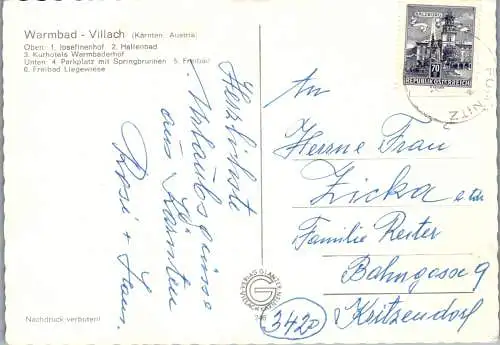 Warmbad - Villach (Kärnten, Austria)
Oben: 1. Josefinenhof 2. Hallenbad
3. Kurhotels Warmbaderhof
Unten: 4. Parkplatz mit Springbrunnen 5. Freibad
6. Freibad Liegewiese
Herzlichste
Urlaubsgrüsse
aus Kärnten
Rosi + Hans.
SALZBURG
70
REPUBLIK ÖSTERREICH
An
Herrn e Frau
Zicka
Familie Reiter
Bahngasse 9
3420 Kritzendorf
VERLAG GLANZER
VILLACH KÄRNTEN
Nachdruck verboten!